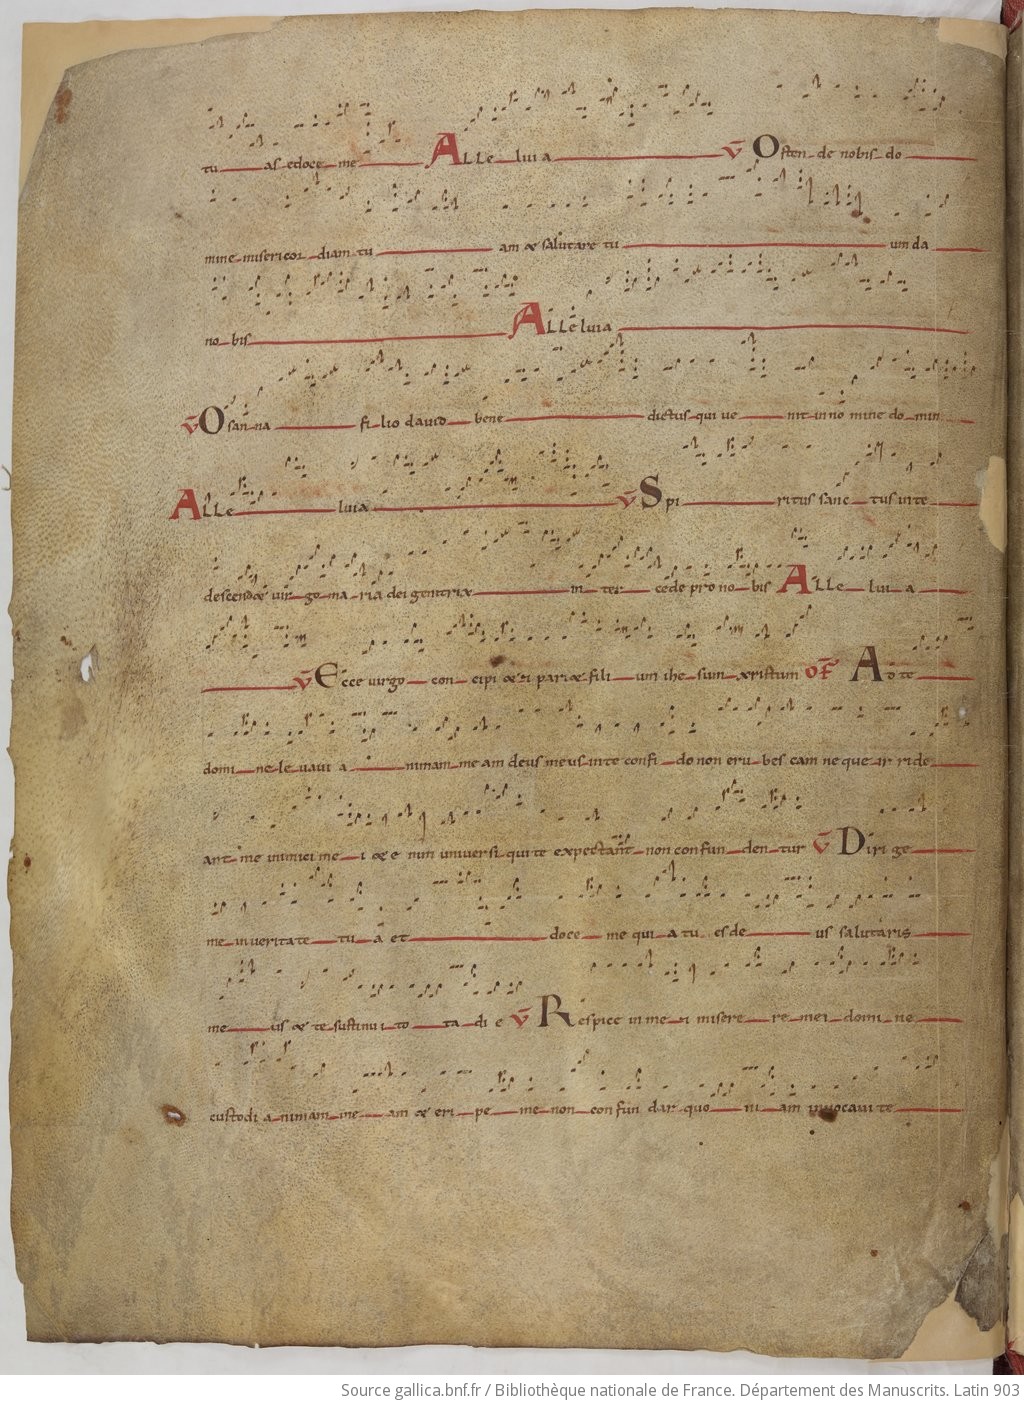 tu as edoce me Alleluia V Osten de nobis do
mine misericor diam tu am & salutare tu um da
no bis Alleluia
V Osan na fi lio david bene dictus qui ve nit in no mine do min
Alle luia V Spi ritus sanc tus in te
descend& vir go ma ria dei genitrix in ter cede pro no bis Alle lui a
V Ecce virgo con cipi & & pari& fili um ihe sum xpistum OF Ad te
domi ne le vavi a nimam me am deus meus inte confi do non eru bes cam neque ir ride
ant me inimici me i & e nim universi qui te expectant non confun den tur V Diri ge
me inveritate tu a et doce me qui a tu es de us salutaris
me us & te sustinui to ta di e V Respice in me & misere re mei domi ne
custodi a nimam me am & eri pe me non confun dar quo ni am invocavi te
Source gallica.bnf.fr / Bibliothèque nationale de France. Département des Manuscrits. Latin 903